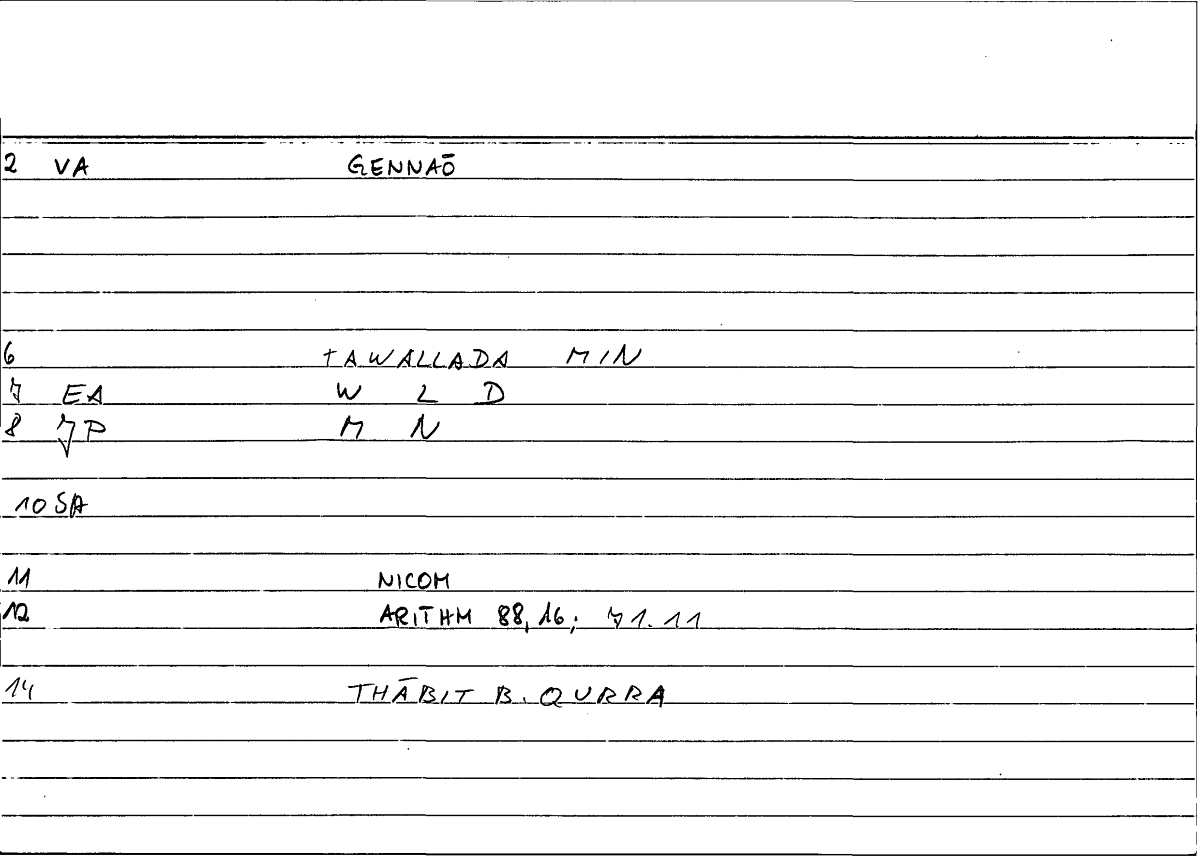 2 VA GENNAŌ
6 TAWALLADA MIN
7 EA W L D
8 JP M N
10 SA
11 NICOM
12 ARITHM 88,16; 71.11
14 THĀBIT B. QURRA